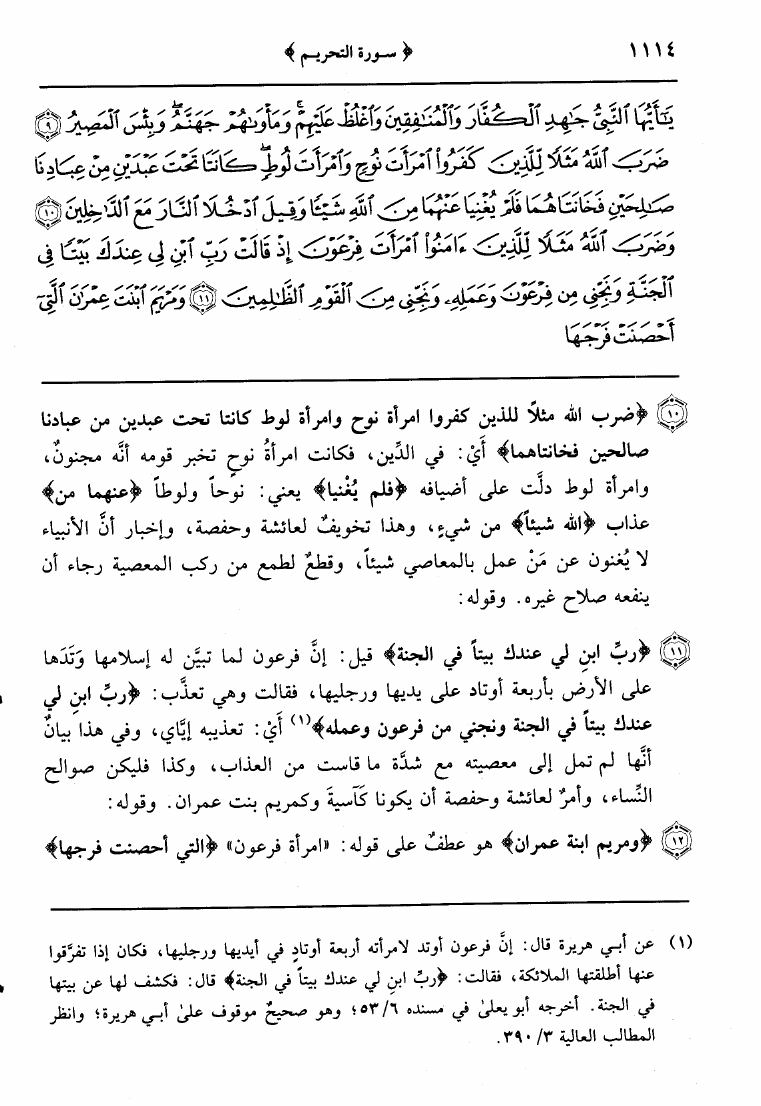 ١١١٤ ﴿ سورة التحريم ﴾
يَٰٓأَيُّهَا ٱلنَّبِيُّ جَٰهِدِ ٱلْكُفَّارَ وَٱلْمُنَٰفِقِينَ وَٱغْلُظْ عَلَيْهِمْ ۚ وَمَأْوَىٰهُمْ جَهَنَّمُ ۖ وَبِئْسَ ٱلْمَصِيرُ ٩
ضَرَبَ ٱللَّهُ مَثَلًا لِّلَّذِينَ كَفَرُوا۟ ٱمْرَأَتَ نُوحٍ وَٱمْرَأَتَ لُوطٍ ۖ كَانَتَا تَحْتَ عَبْدَيْنِ مِنْ عِبَادِنَا
صَٰلِحَيْنِ فَخَانَتَاهُمَا فَلَمْ يُغْنِيَا عَنْهُمَا مِنَ ٱللَّهِ شَيْـًٔا وَقِيلَ ٱدْخُلَا ٱلنَّارَ مَعَ ٱلدَّٰخِلِينَ ١٠
وَضَرَبَ ٱللَّهُ مَثَلًا لِّلَّذِينَ ءَامَنُوا۟ ٱمْرَأَتَ فِرْعَوْنَ إِذْ قَالَتْ رَبِّ ٱبْنِ لِى عِندَكَ بَيْتًا فِى
ٱلْجَنَّةِ وَنَجِّنِى مِن فِرْعَوْنَ وَعَمَلِهِۦ وَنَجِّنِى مِنَ ٱلْقَوْمِ ٱلظَّٰلِمِينَ ١١ وَمَرْيَمَ ٱبْنَتَ عِمْرَٰنَ ٱلَّتِىٓ
أَحْصَنَتْ فَرْجَهَا
١٠ ﴿ضرب الله مثلاً للذين كفروا امرأة نوح وامرأة لوط كانتا تحت عبدين من عبادنا
صالحين فخانتاهما﴾ أَيْ: في الدِّين، فكانت امرأةُ نوحٍ تخبر قومه أنَّه مجنونٌ،
وامرأة لوط دلَّت على أضيافه ﴿فلم يُغْنيا﴾ يعني: نوحاً ولوطاً ﴿عنهما من﴾
عذاب ﴿الله شيئاً﴾ من شيءٍ، وهذا تخويفٌ لعائشة وحفصة، وإخبار أنَّ الأنبياء
لا يُغنون عن مَنْ عمل بالمعاصي شيئاً، وقطعٌ لطمع من ركب المعصية رجاء أن
ينفعه صلاح غيره. وقوله:
١١ ﴿ربِّ ابنِ لي عندك بيتاً في الجنة﴾ قيل: إنَّ فرعون لما تبيَّن له إسلامها وَتَدَها
على الأرض بأربعة أوتاد على يديها ورجليها، فقالت وهي تعذَّب: ﴿ربِّ ابنِ لي
عندك بيتاً في الجنة ونجني من فرعون وعمله﴾(١) أَيْ: تعذيبه إيَّاي، وفي هذا بيانٌ
أنَّها لم تمل إلى معصيته مع شدَّة ما قاست من العذاب، وكذا فليكن صوالح
النِّساء، وأمرٌ لعائشة وحفصة أن يكونا كَآسيةَ وكمريم بنت عمران. وقوله:
١٢ ﴿ومريم ابنة عمران﴾ هو عطفٌ على قوله: «امرأة فرعون» ﴿التي أحصنت فرجها﴾
(١) عن أبي هريرة قال: إنَّ فرعون أوتد لامرأته أربعة أوتادٍ في أيديها ورجليها، فكان إذا تفرَّقوا
عنها أطلقتها الملائكة، فقالت: ﴿ربِّ ابن لي عندك بيتاً في الجنة﴾ قال: فكشف لها عن بيتها
في الجنة. أخرجه أبو يعلىٰ في مسنده ٥٣/٦؛ وهو صحيحٌ موقوف علىٰ أبي هريرة؛ وانظر
المطالب العالية ٣٩٠/٣.